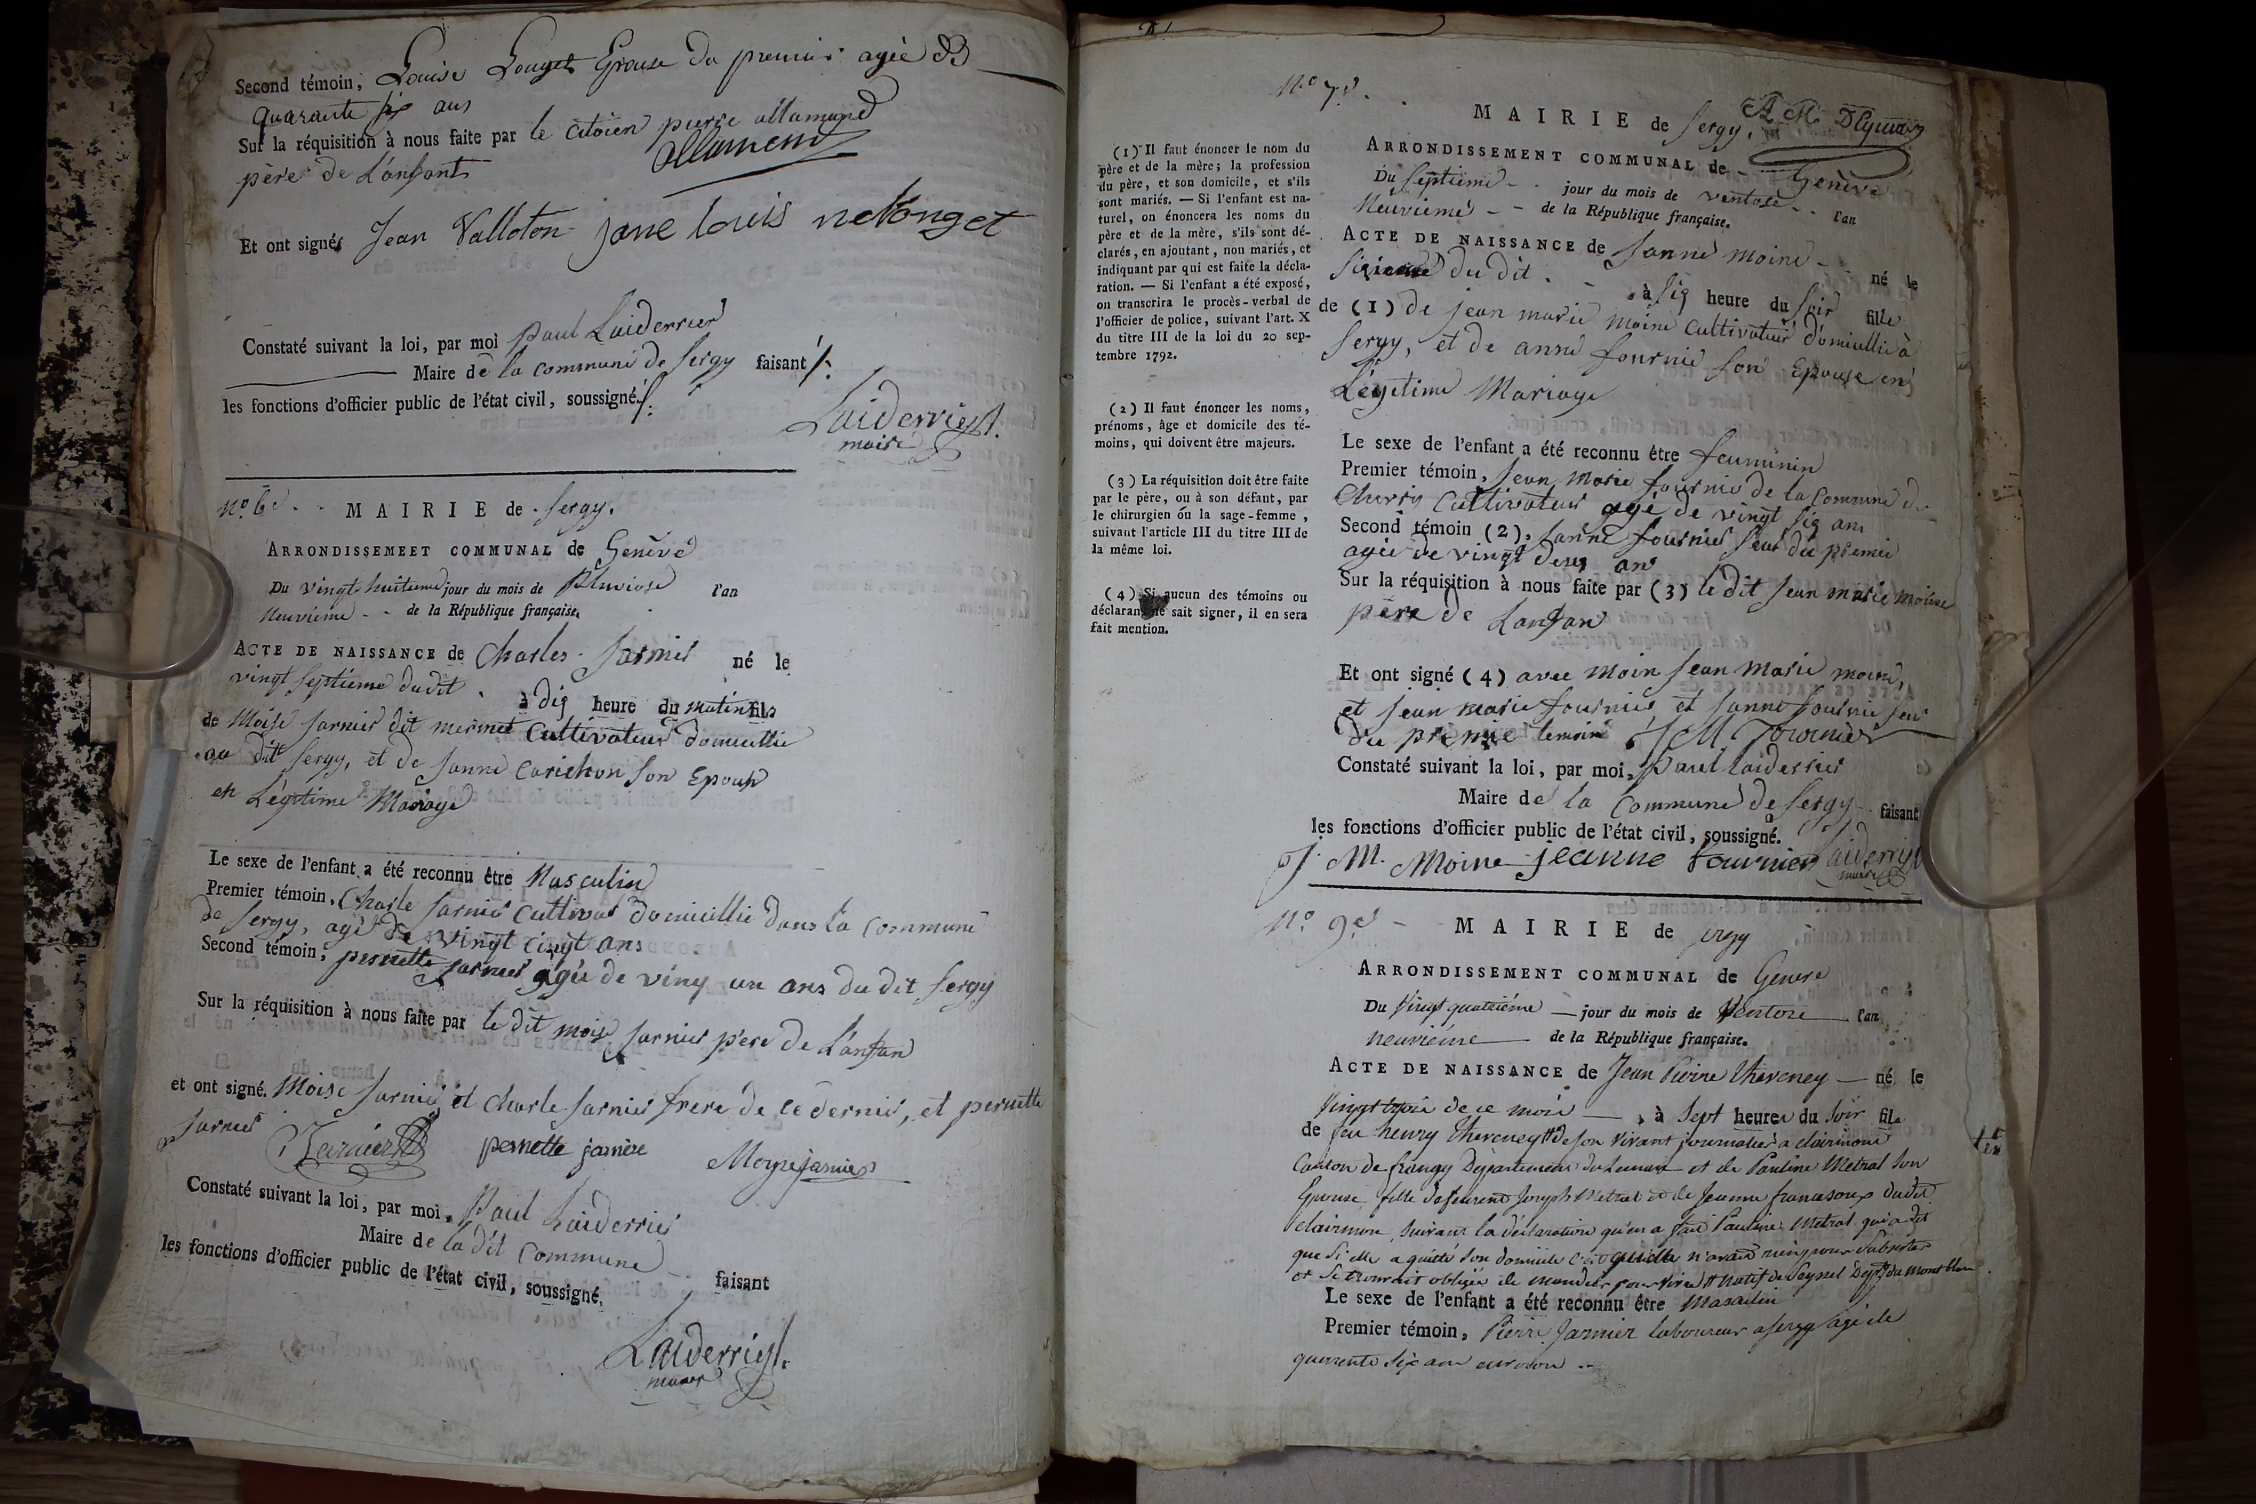 Second témoin, Louise Longet Epouse du premier agée de
quarante six ans
Sur la réquisition à nous faite par le citoien pierre allamand
père de L'anfant
allamend
Et ont signés Jean Valloton jane louis nelonget
Constaté suivant la loi, par moi paul Laiderrier
Maire de la commune de Sergy faisant
les fonctions d'officier public de l'état civil, soussigné.
Laiderrier
maire
N.º 6e MAIRIE de Sergy.
ARRONDISSEMEET COMMUNAL de Genève
Du vingt huitieme jour du mois de Pluviose l'an
Neuvieme de la République française.
ACTE DE NAISSANCE de Charles Jarnier né le
vingt Septieme dudit à dig heure du matin fils
de Moise Jarnier dit mermet Cultivateur domicillié
au dit Sergy, et de Janne Carichon Son Epouse
en Légitime Mariage
Le sexe de l'enfant a été reconnu être Masculin
Premier témoin, Charle Jarnier cultivar domicillié dans la commune
de Sergy, agé de vingt cinqt ans
Second témoin, pernette Jarnier agée de ving un ans du dit Sergy
Sur la réquisition à nous faite par le dit moise Jarnier père de L'anfan
et ont signé. Moise Jarnier, et Charle Jarnier frere de ce dernier, et pernette
Jarnier
Jarnier pernette jarnière Moyse jarnier
Constaté suivant la loi, par moi, Paul Laiderrier
Maire de la dit Commune faisant
les fonctions d'officier public de l'état civil, soussigné.
Laiderrier
maire
N.º 7e
MAIRIE de Sergy.
ARRONDISSEMENT COMMUNAL de Genève
Du Septieme jour du mois de ventose l'an
Neuvieme de la République française.
ACTE DE NAISSANCE de Janne moine né le
du dit à Sig heure du Soir fille
de (1) de jean marie moine Cultivateur domicillié à
Sergy, et de anne fournie Son Epouse en
Légitime Mariage
Le sexe de l'enfant a été reconnu être feuminin
Premier témoin, Jean Marie fournie de la Commune de
Chevry Cultivateur agé de vingt Sig ans
Second témoin (2), Janne fournier Seur du premier
agée de vingt deux ans
Sur la réquisition à nous faite par (3) le dit Jean marie moine
père de Lanfan
Et ont signé (4) avec moin Jean Marie moine,
et Jean marie fournier et Janne fournie Seur
du premie temoins J M Fournier
Constaté suivant la loi, par moi, Paul Laiderrier
Maire de la Commune de Sergy faisant
les fonctions d'officier public de l'état civil, soussigné.
J. M. Moine jeanne fournier Laiderrier
maire
(1) Il faut énoncer le nom du
père et de la mère; la profession
du père, et son domicile, et s'ils
sont mariés. — Si l'enfant est na-
turel, on énoncera les noms du
père et de la mère, s'ils sont dé-
clarés, en ajoutant, non mariés, et
indiquant par qui est faite la décla-
ration. — Si l'enfant a été exposé,
on transcrira le procès-verbal de
l'officier de police, suivant l'art. X
du titre III de la loi du 20 sep-
tembre 1792.
(2) Il faut énoncer les noms,
prénoms, âge et domicile des té-
moins, qui doivent être majeurs.
(3) La réquisition doit être faite
par le père, ou à son défaut, par
le chirurgien ou la sage-femme,
suivant l'article III du titre III de
la même loi.
(4) Si aucun des témoins ou
déclarans ne sait signer, il en sera
fait mention.
N.º 9e MAIRIE de sergy
ARRONDISSEMENT COMMUNAL de Geneve
Du Vingt quatriéme jour du mois de Ventose l'an
neuviéme de la République française.
ACTE DE NAISSANCE de Jean Pierre Theveney né le
Vingt trois de ce mois, à Sept heures du Soir fils
de feu henry Theveney # de son vivant journalier a clairmont
Canton de frangy Département du Leman et de Pauline Metral son
Epouse fille de Joseph Metral et de Jeanne dudit
clairmon, suivant la déclaration qu'en a fait Pauline Metral qui a dit
que si elle a quitté son domicile c'es quelle n'avait rien pour subsister
et se trouvait obligée de mendier pour vivre # natif de Seysel Dept du mont blanc
Le sexe de l'enfant a été reconnu être Masculin
Premier témoin, Pierre Jarnier laboureur a sergy agé de
quarente six ans environ